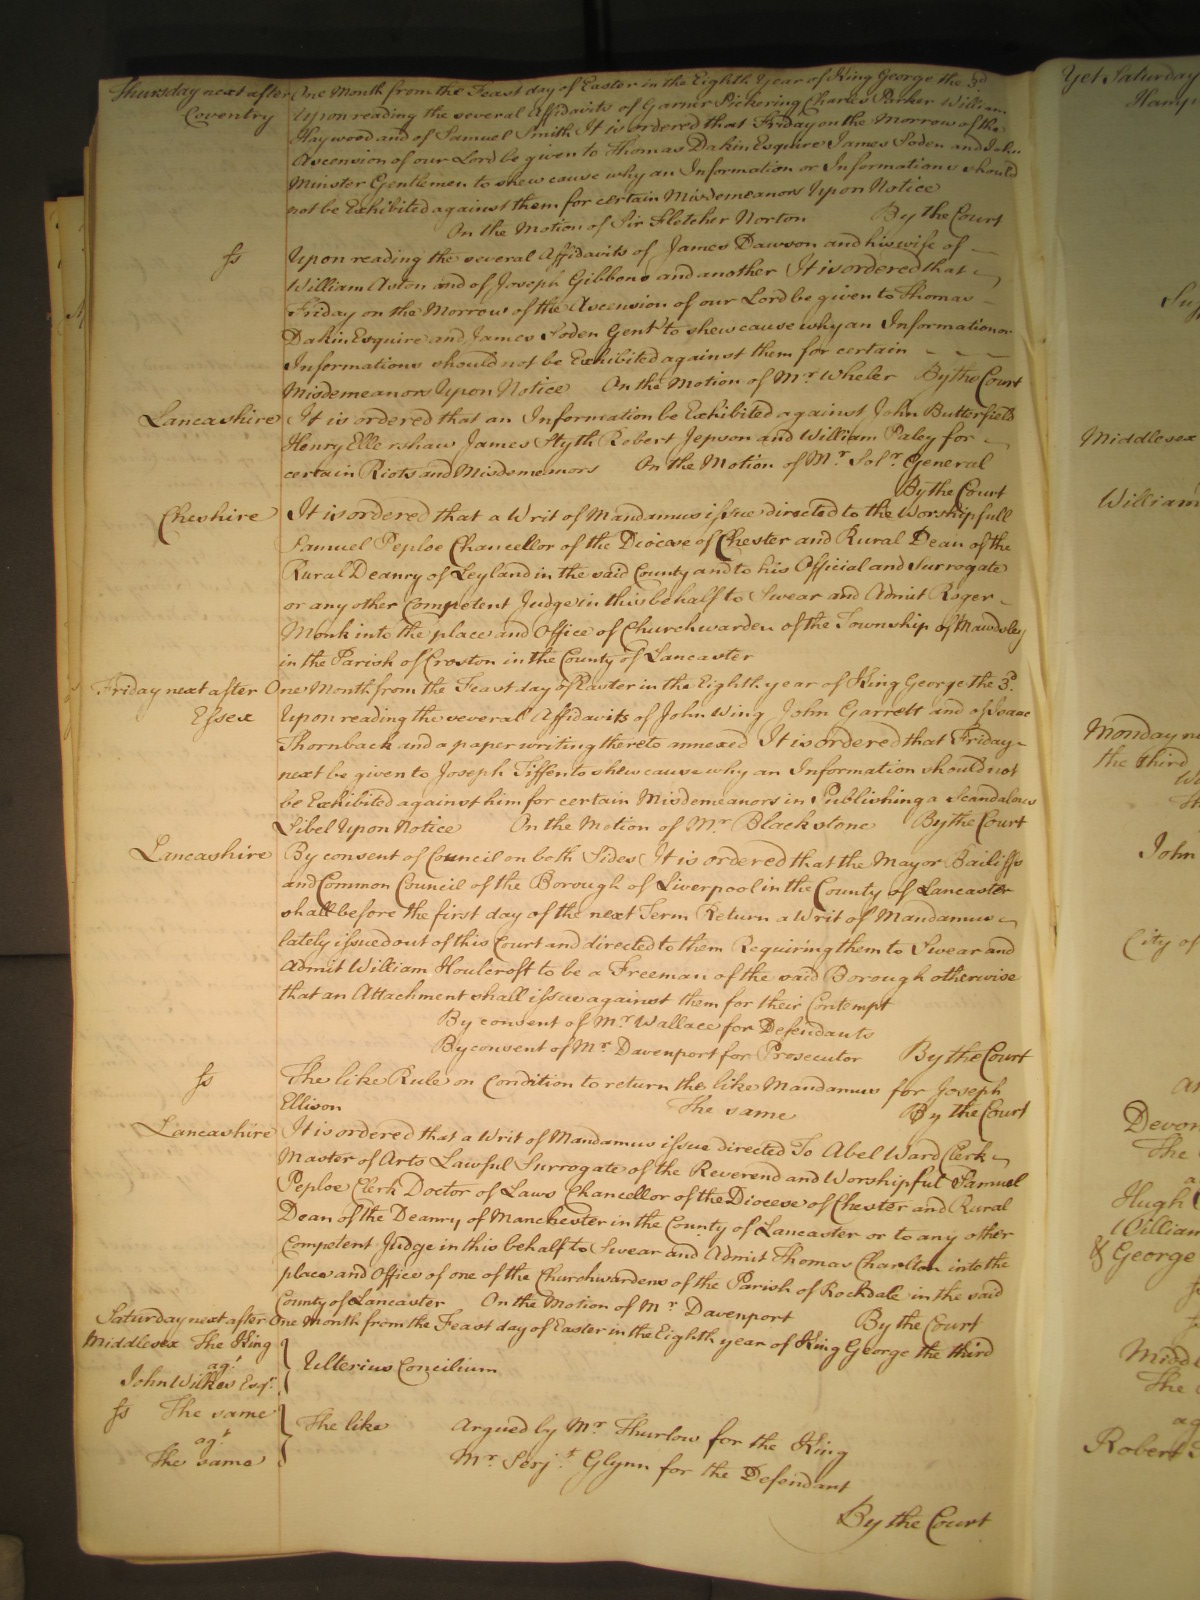 Thursday next after One Month from the Feast day of Easter in the Eighth Year of King George the 3d
Coventry Upon reading the several Affidavits of Garner Pickering Charles Parker William
Haywood and of Samuel Smith It is ordered that Friday on the Morrow of the
Ascension of our Lord be given to Thomas Dakin Esquire James Soden and John
Minster Gentlemen to shew cause why an Information or Informations should
not be Exhibited against them for certain Misdemeanors Upon Notice
On the Motion of Sir Fletcher Norton By the Court
ss Upon reading the several Affidavits of James Dawson and his wife of
William Aston and of Joseph Gibbons and another It is ordered that
Friday on the Morrow of the Ascension of our Lord be given to Thomas
Dakin Esquire and James Soden Gent to shew cause why an Information or
Informations should not be Exhibited against them for certain
Misdemeanors Upon Notice On the Motion of Mr Wheler By the Court
Lancashire It is ordered that an Information be Exhibited against John Butterfield
Henry Ellershaw James Styth Robert Jepson and William Paley for
certain Riots and Misdemeanors On the Motion of Mr Solr General
By the Court
Cheshire It is ordered that a Writ of Mandamus issue directed to the Worshipfull
Samuel Peploe Chancellor of the Diocese of Chester and Rural Dean of the
Rural Deanry of Leyland in the said County and to his Official and Surrogate
or any other Competent Judge in this behalf to Swear and Admit Roger
Monk into the place and Office of Churchwarden of the Township of Mawdsley
in the Parish of Croston in the County of Lancaster
Friday next after One Month from the Feast day of Easter in the Eighth year of King George the 3d
Essex Upon reading the several Affidavits of John Wing John Garrett and of Isaac
Thornback and a paper writing thereto annexed It is ordered that Friday
next be given to Joseph Tiffen to shew cause why an Information should not
be Exhibited against him for certain Misdemeanors in Publishing a Scandalous
Libel Upon Notice On the Motion of Mr Blackstone By the Court
Lancashire By consent of Council on both Sides It is ordered that the Mayor Bailiffs
and Common Council of the Borough of Liverpool in the County of Lancaster
shall before the first day of the next Term Return a Writ of Mandamus
lately issued out of this Court and directed to them Requiring them to Swear and
Admit William Houlcroft to be a Freeman of the said Borough otherwise
that an Attachment shall issue against them for their Contempt
By consent of Mr Wallace for Defendants
By consent of Mr Davenport for Prosecutor By the Court
ss The like Rule on Condition to return the like Mandamus for Joseph
Ellison The same By the Court
Lancashire It is ordered that a Writ of Mandamus issue directed To Abel Ward Clerk
Master of Arts Lawful Surrogate of the Reverend and Worshipful Samuel
Peploe Clerk Doctor of Laws Chancellor of the Diocese of Chester and Rural
Dean of the Deanry of Manchester in the County of Lancaster or to any other
Competent Judge in this behalf to Swear and Admit Thomas Charlton into the
place and Office of one of the Churchwardens of the Parish of Rochdale in the said
County of Lancaster On the Motion of Mr Davenport By the Court
Saturday next after One Month from the Feast day of Easter in the Eighth year of King George the third
Middlesex The King
agt
John Wilkes Esqr
Ulterius Concilium
ss The same
agt
The same
The like Argued by Mr Thurlow for the King
Mr Serjt Glynn for the Defendant
By the Court
Yet Saturday
Middlesex
William
Monday
the third
John
City of
Devon
The
Hugh
William
& George
The
Robert